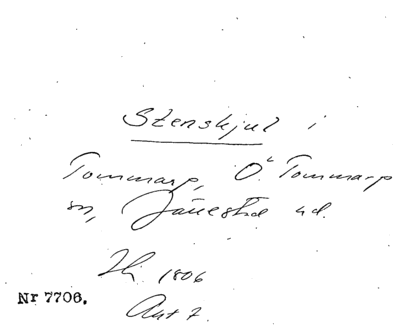 Stenskjul i
Tommarp, Ö. Tommarp
sn, Järrestad hd.
1806
Nr 7706.
Ant 7.